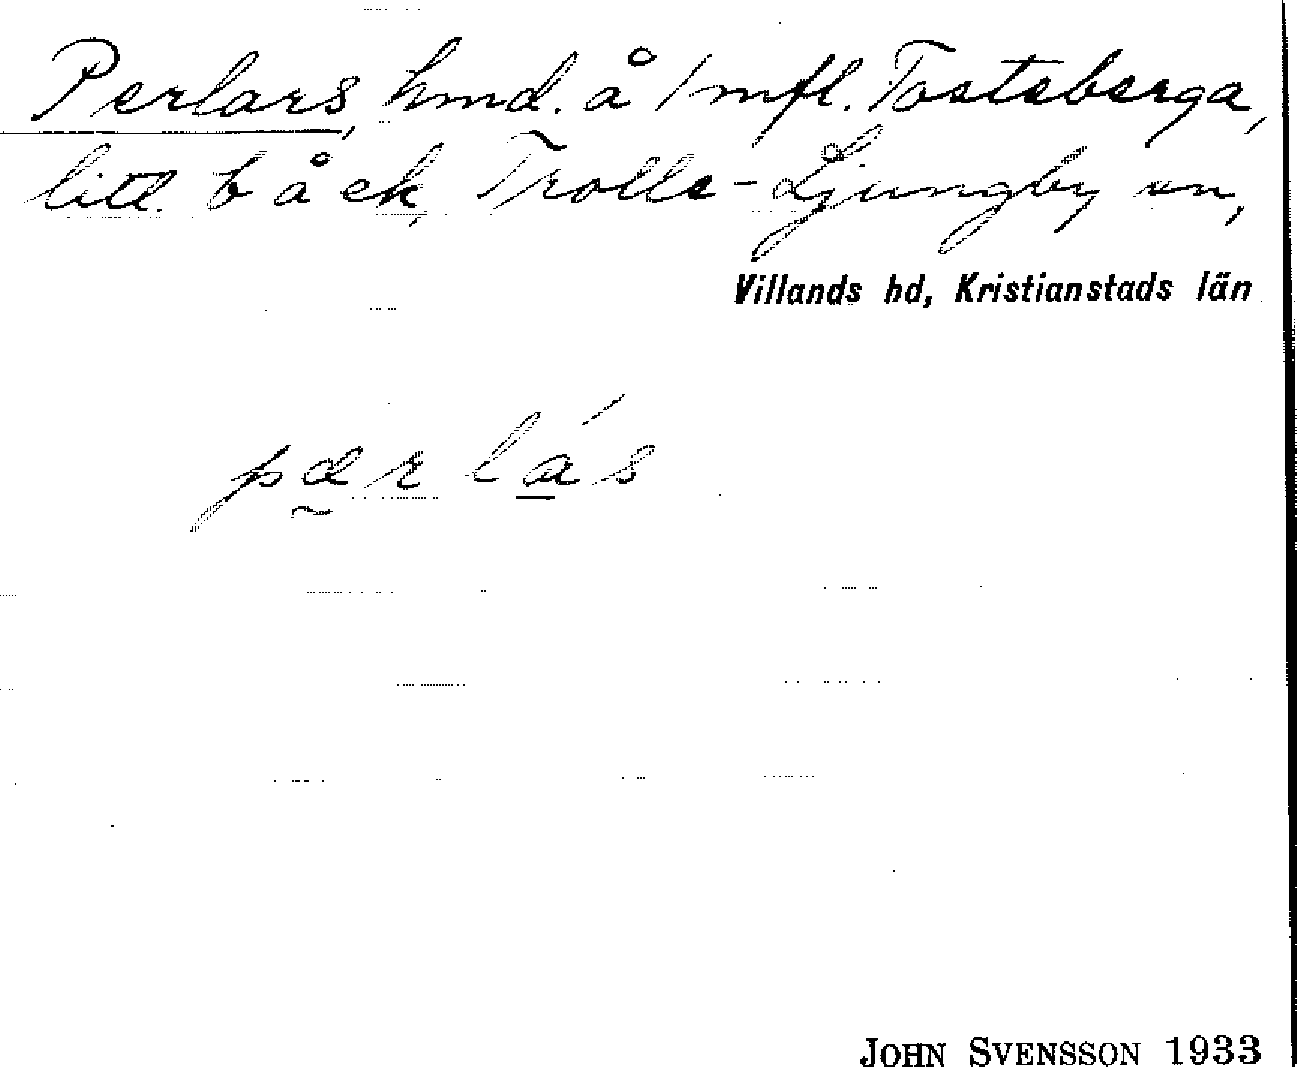 Perlars, hmd. å 1 mfl. Tosteberga,
litt. b å ek, Trolle-Ljungby sn,
Villands hd, Kristianstads län
pærlá̱s
JOHN SVENSSON 1933